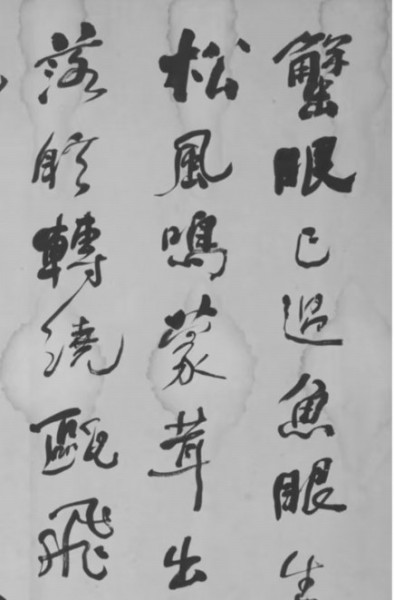 蟹眼已過魚眼生
松風鳴蒙茸出
落眩轉繞甌飛